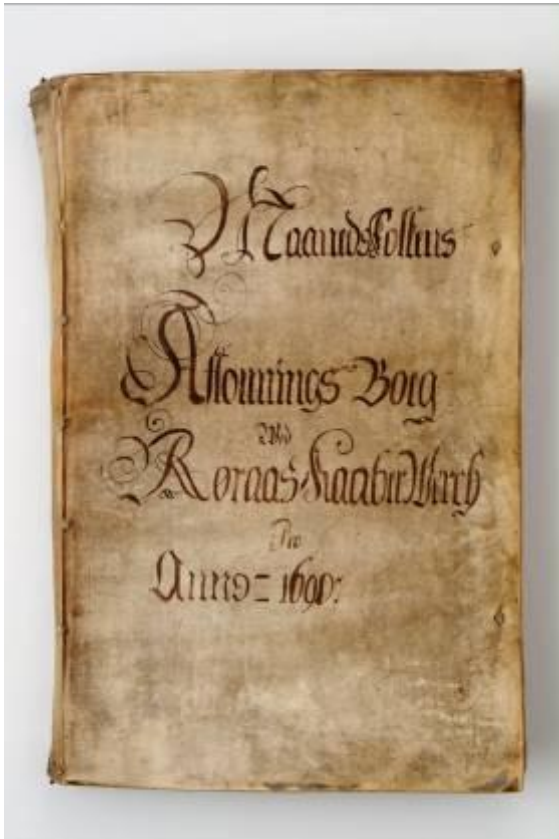 Maaneds Folkens
Aflønnings Borg
Wed
Røraas Kaaber Werch
Pro
Anno = 1690: